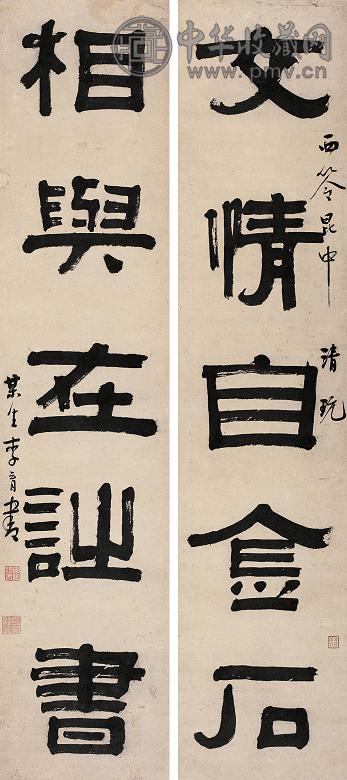 中华收藏网
www.pmv.cn
交情自金石
西笭昆中 清玩
相與在詩書
某生李育書